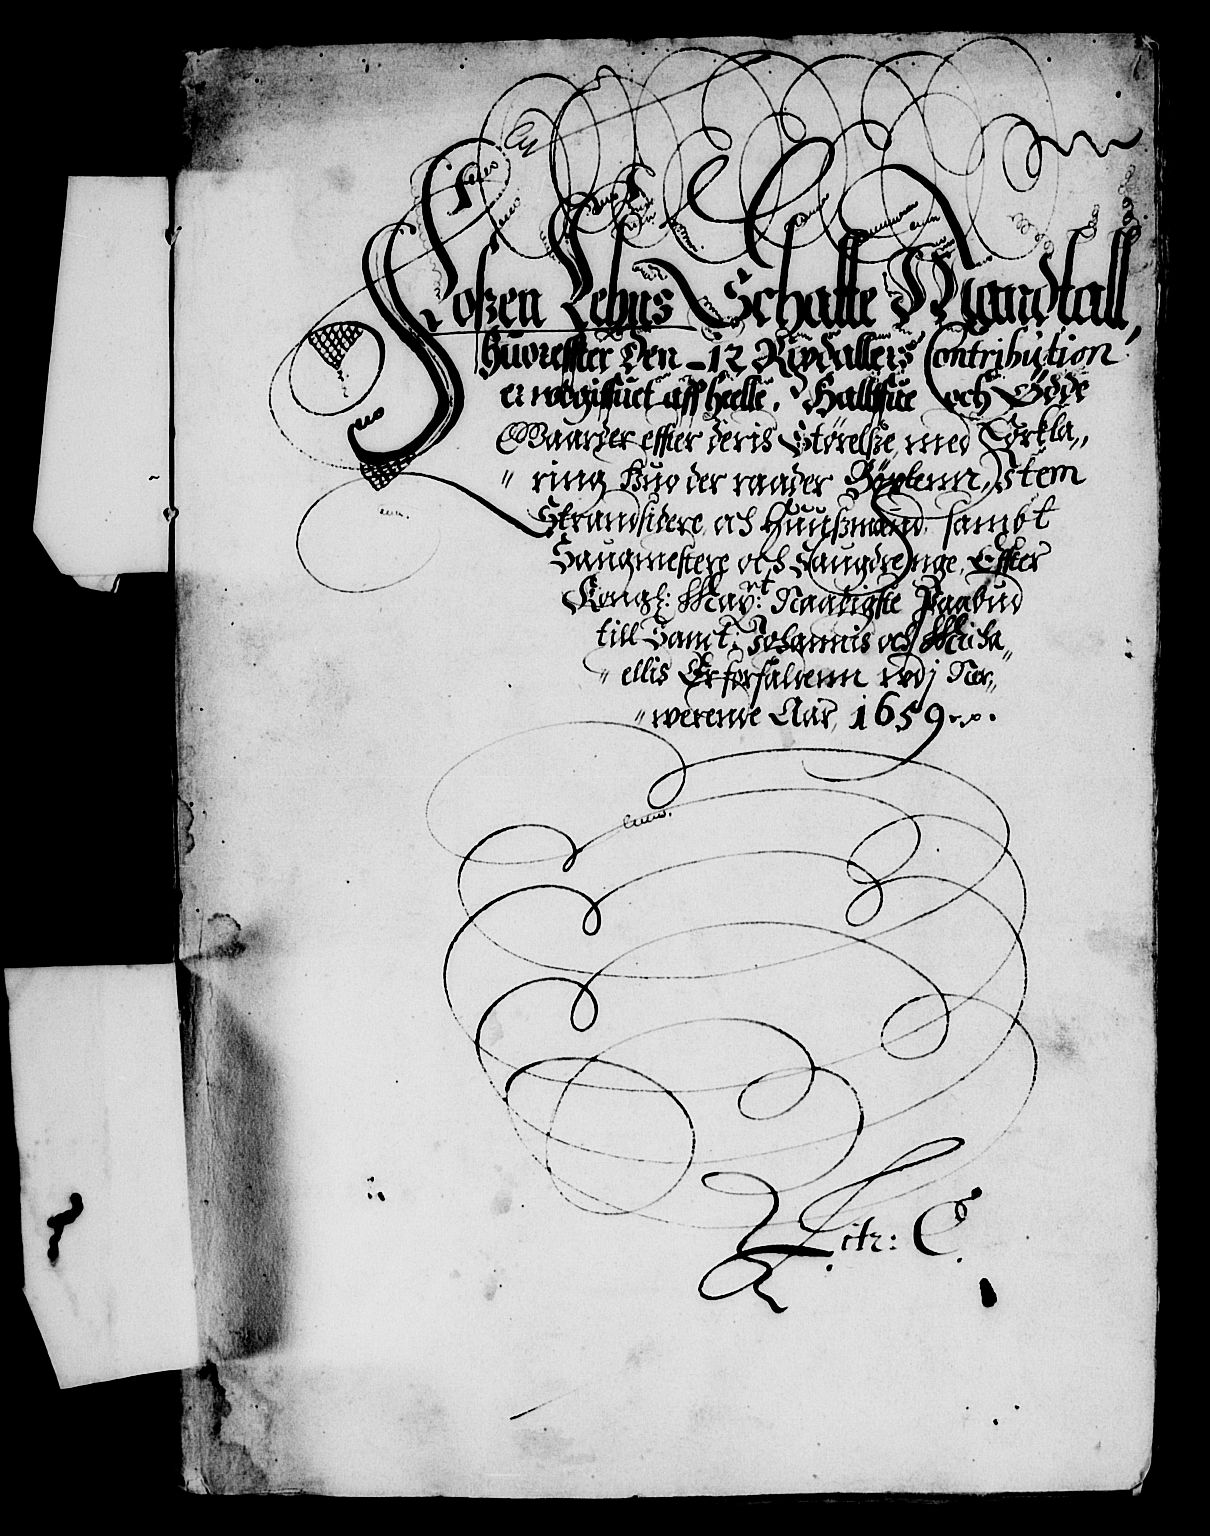 Foßen Lehns Schatte Mandtall,
Huorefter den 12 Rixdallers Contribution
er udgifuet aff heelle, Halffue och Øde
Gaarder effter deris Størelsse, med Forkla,,
,, ring huo der raader Böxlenn, Item
Strandsidere, och Huußmænd, sambt
Saugmestere och Saugdrenge, Effter
Kongl: May:tt Naadigste Paabud
till Sanct: Johannis och Micha,,
,, ellis Er forfaldenn udj Ner,,
,, werende Aar, 1659
Litr: C